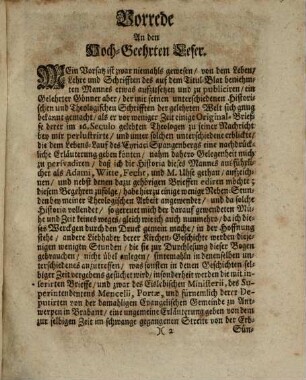 Vorrede
An den
Hoch-Geehrten Leser.
MEin Vorsatz ist zwar niemahls gewesen / von dem Leben /
Lehre und Schrifften des auf dem Titul-Blat benehm-
ten Mannes etwas aufzusetzen und zu publiciren / ein
Gelehrter Gönner aber / der mit seinen unterschiedenen Histori-
schen und Theologischen Schrifften der gelehrten Welt sich gnug
bekannt gemacht / als er vor weniger Zeit einige Original-Brie-
fe derer im 16. Seculo gelebten Theologen zu seiner Nachricht
bey mir perlustrirte / und unter solchen unterschiedene erblickte /
die dem Lebens-Lauf des Cyriaci Spangenbergs eine nachdrück-
liche Erläuterung geben konten / nahm dahero Gelegenheit mich
zu perivadiren / daß ich die Historia dieses Manns ausführli-
cher als Adami, Witte, Fecht, und M. Uhse gethan / aufzeich-
nen / und nebst denen dazu gehörigen Brieffen ediren möchte;
diesem Begehren zufolge / habe hierzu einige wenige Neben-Stun-
den bey meiner Theologischen Arbeit angewendet / und da solche
Historie vollendet / so gereuet mich der darauf gewendeten Mü-
he und Zeit keines weges / gleich wie ich auch nunmehro / da ich die-
ses Werckgen durch den Druck gemein mache / in der Hoffnung
stehe / andere Liebhaber derer Kirchen-Geschichte werden dieje-
nigen wenigen Stunden / die sie zur Durchlesung dieser Bogen
gebrauchen / nicht übel anlegen / sintemahln in denenselben un-
terschiedenes anzutreffen / was sonsten in denen Geschichten sel-
biger Zeit vergebens gesuchet wird / insonderheit werden die mit in-
serirten Brieffe / und zwar des Eißlebischen Ministerii, des Su-
perintendentens Mencelii, Portæ, und fürnemlich derer De-
putirten von der damahligen Evangelischen Gemeinde zu Ant-
werpen in Brabant / eine ungemeine Erläuterung geben von dem
zur selbigen Zeit im schwange gegangenen Streite von der Erb-
)( 2 Sün-